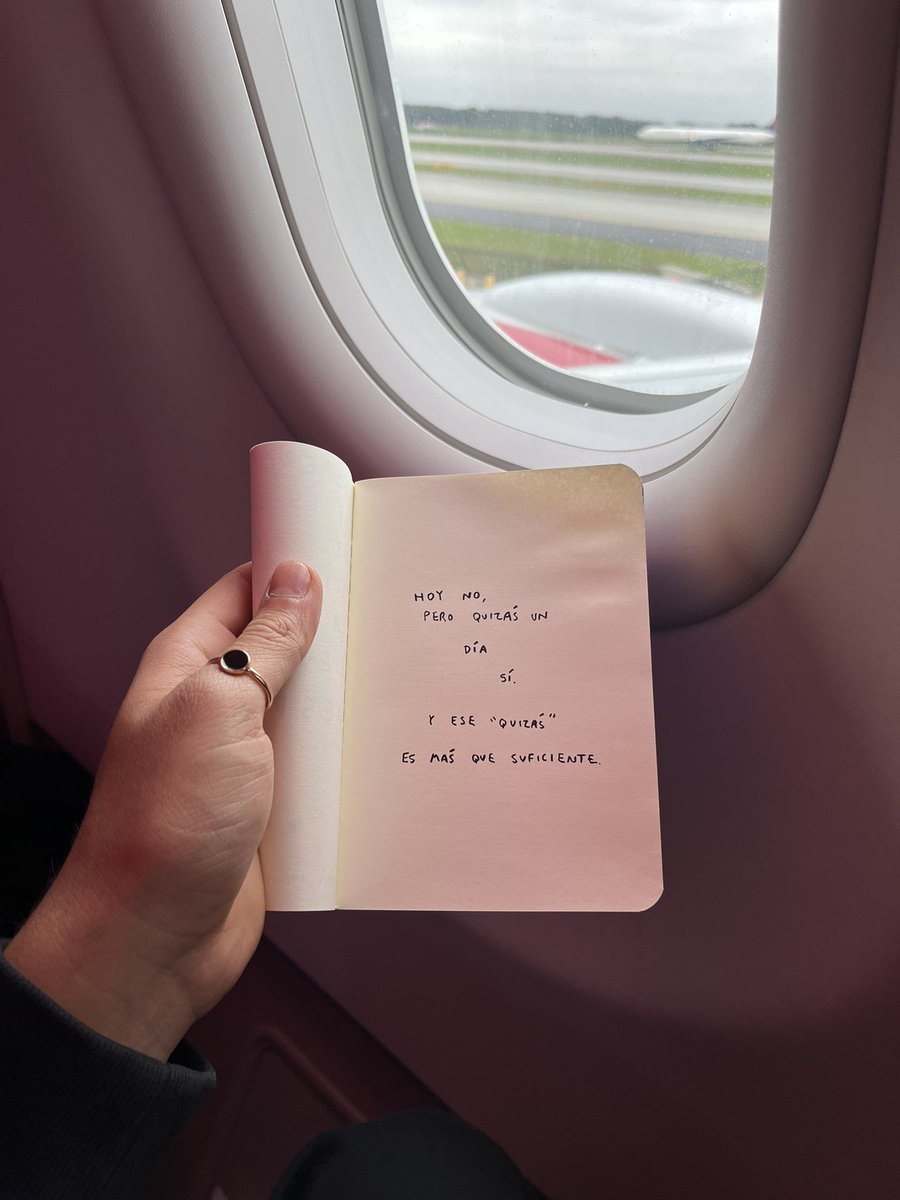 HOY NO,
PERO QUIZÁS UN
DÍA
SÍ.
Y ESE "QUIZÁS"
ES MÁS QUE SUFICIENTE.